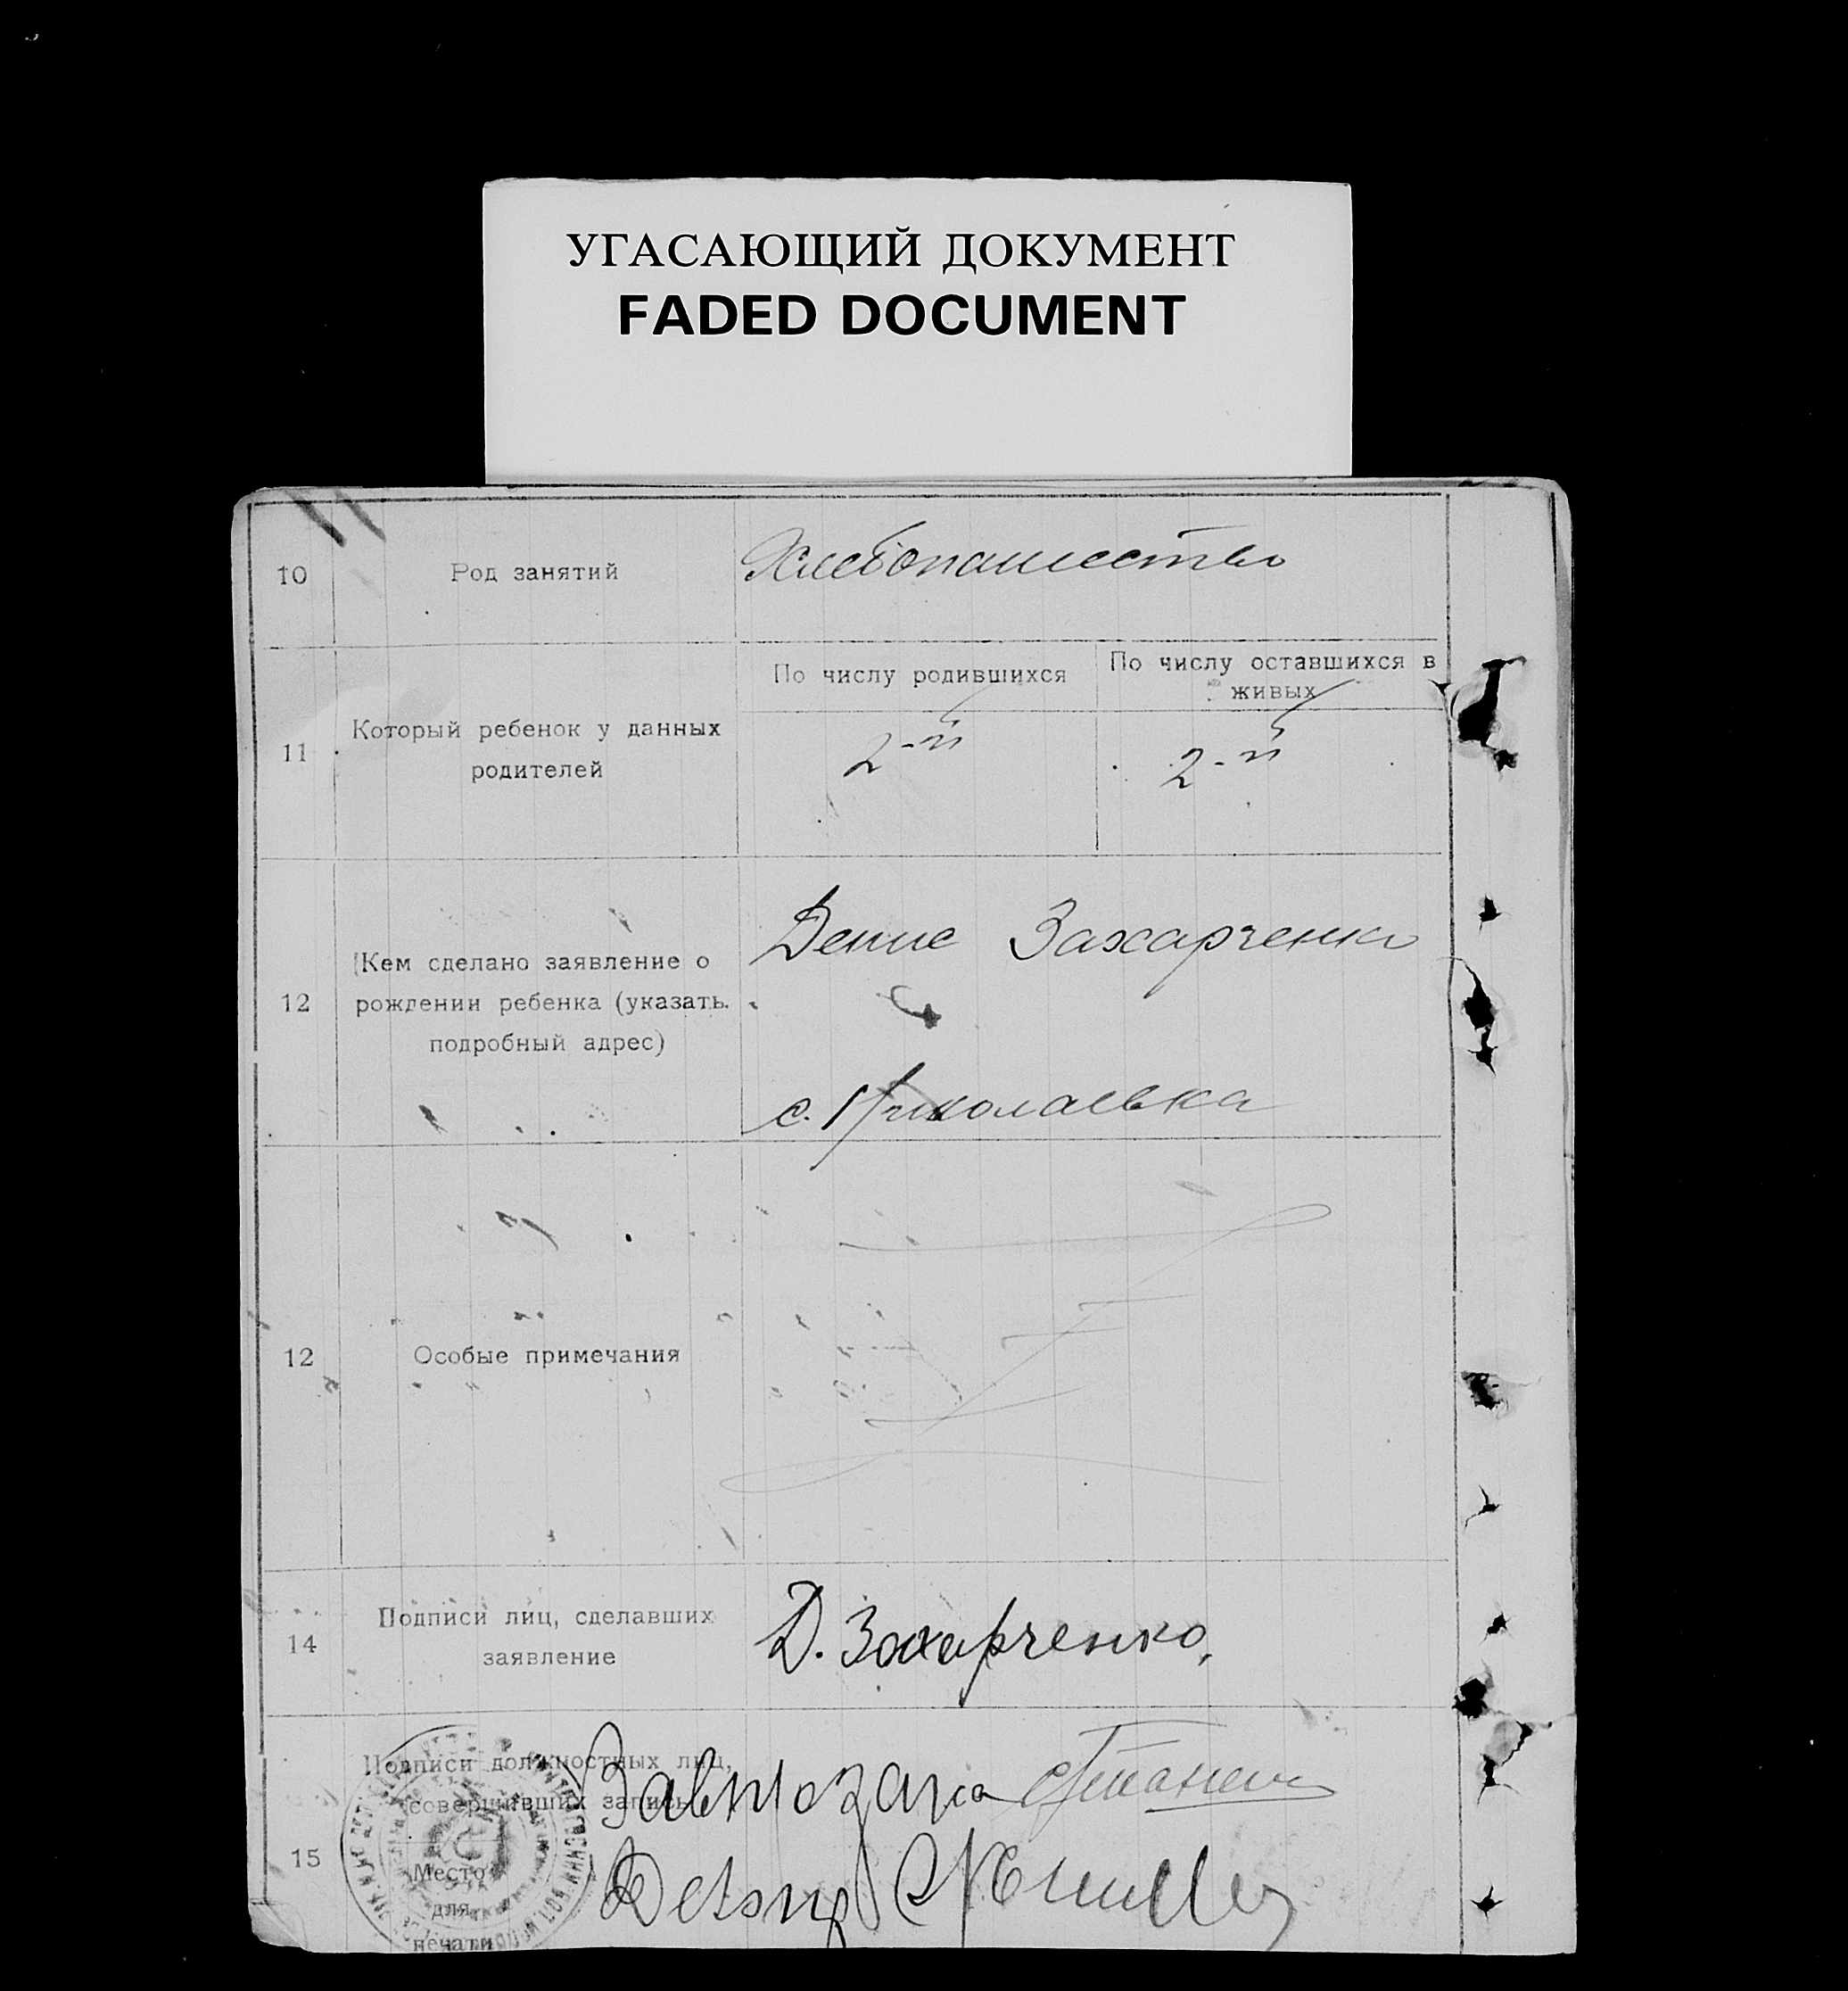 УГАСАЮЩИЙ ДОКУМЕНТ
FADED DOCUMENT
10 Род занятий Хлебопашество
11 Который ребенок у данных родителей
По числу родившихся
По числу оставшихся в живых
2-й
2-й
12 Кем сделано заявление о
рождении ребенка (указать
подробный адрес)
Денис Захарченко
с. Николаевка
12 Особые примечания
14 Подписи лиц, сделавших
заявление
Д. Захарченко,
15 Подписи должностных лиц,
совершивших запись
Завстозага
Место
для
печати
Делопр